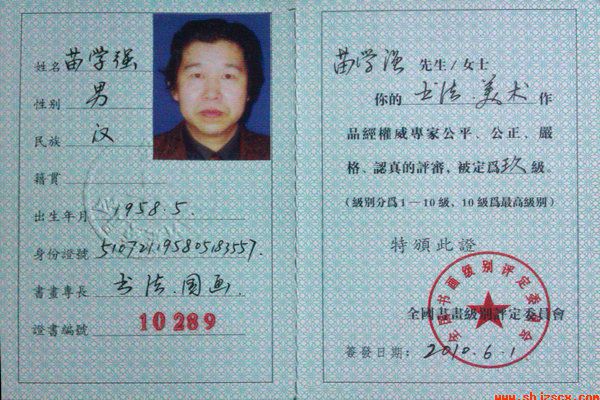 姓名 苗学强
性别 男
民族 汉
籍貫
出生年月 1958.5.
身份證號 510721195805183557.
書畫專長 书法.国画.
證書編號 10289
苗学强 先生/女士
你的 书法.美术 作
品經權威專家公平、公正、嚴
格、認真的評審，被定爲玖級。
（級别分爲1—10級，10級爲最高級别）
特頒此證
全國書畫級别評定委員會
全国书画级别评定委员会
簽發日期：2010.6.1
www.shizscx.com